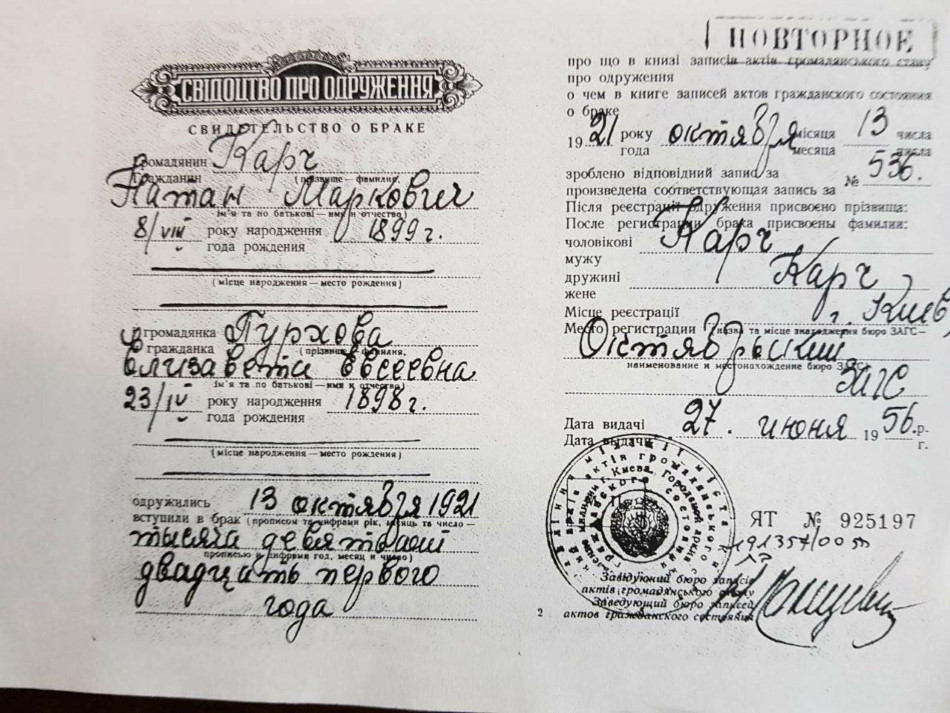 СВІДОЦТВО ПРО ОДРУЖЕННЯ
СВИДЕТЕЛЬСТВО О БРАКЕ
Громадянин Карч
Гражданин (прізвище — фамилия,
Натан Маркович
ім'я та по батькові — имя и отчество)
8/VIII року народження 1899 г.
года рождения
(місце народження — место рождения)
громадянка
гражданка (прізвище — фамилия,
Елизавета Евсеевна
ім'я та по батькові — имя и отчество)
23/IV року народження 1898 г.
года рождения
(місце народження — место рождения)
одружились 13 октября 1921
вступили в брак (прописом та цифрами рік, місяць та число —
тысяча девятьсот
прописью и цифрами год, месяц и число)
двадцать первого
года
ПОВТОРНОЕ
про що в книзі записів актів громадянського стану
про одруження
о чем в книге записей актов гражданского состояния
о браке
1921 року октября місяця 13 числа
года месяца числа
зроблено відповідний запис за
произведена соответствующая запись за № 536.
Після реєстрації одруження присвоєно прізвища:
После регистрации брака присвоены фамилии:
чоловікові Карч
мужу
дружині Карч
жене
Місце реєстрації г. Киев,
Место регистрации (назва та місце знаходження бюро ЗАГС—
Октябрьский
наименование и местонахождение бюро ЗАГС)
ЗАГС
Дата видачі 27. июня 1956 р.
Дата выдачи г.
ЯТ № 925197
Завідуючий бюро записів
актів громадянського стану
Заведующий бюро записей
актов гражданского состояния
2